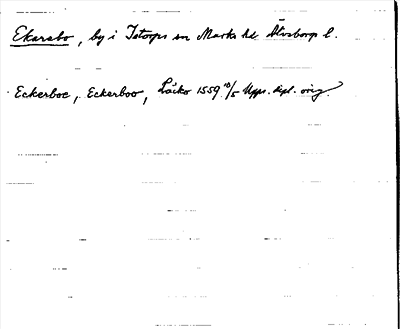 Ekarebo, by i Istorps sn Marks hd Älvsborgs l.
Eckerboe, Eckerboo, Läckö 1559 10/5 Upps. dipl. orig.